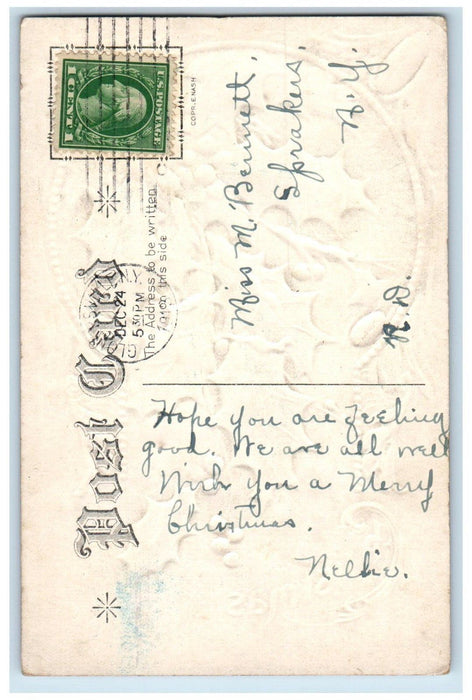 U.S.POSTAGE
1 CENT 1
COPR.E.NASH
Post Card
The Address to be written
on this side
N.Y.
DEC 24
5 30 PM
DEC
Miss M. Bennett,
Sprakers,
N.Y.
R.D.
Hope you are feeling
good. We are all well
Wish you a Merry
Christmas.
Nellie.